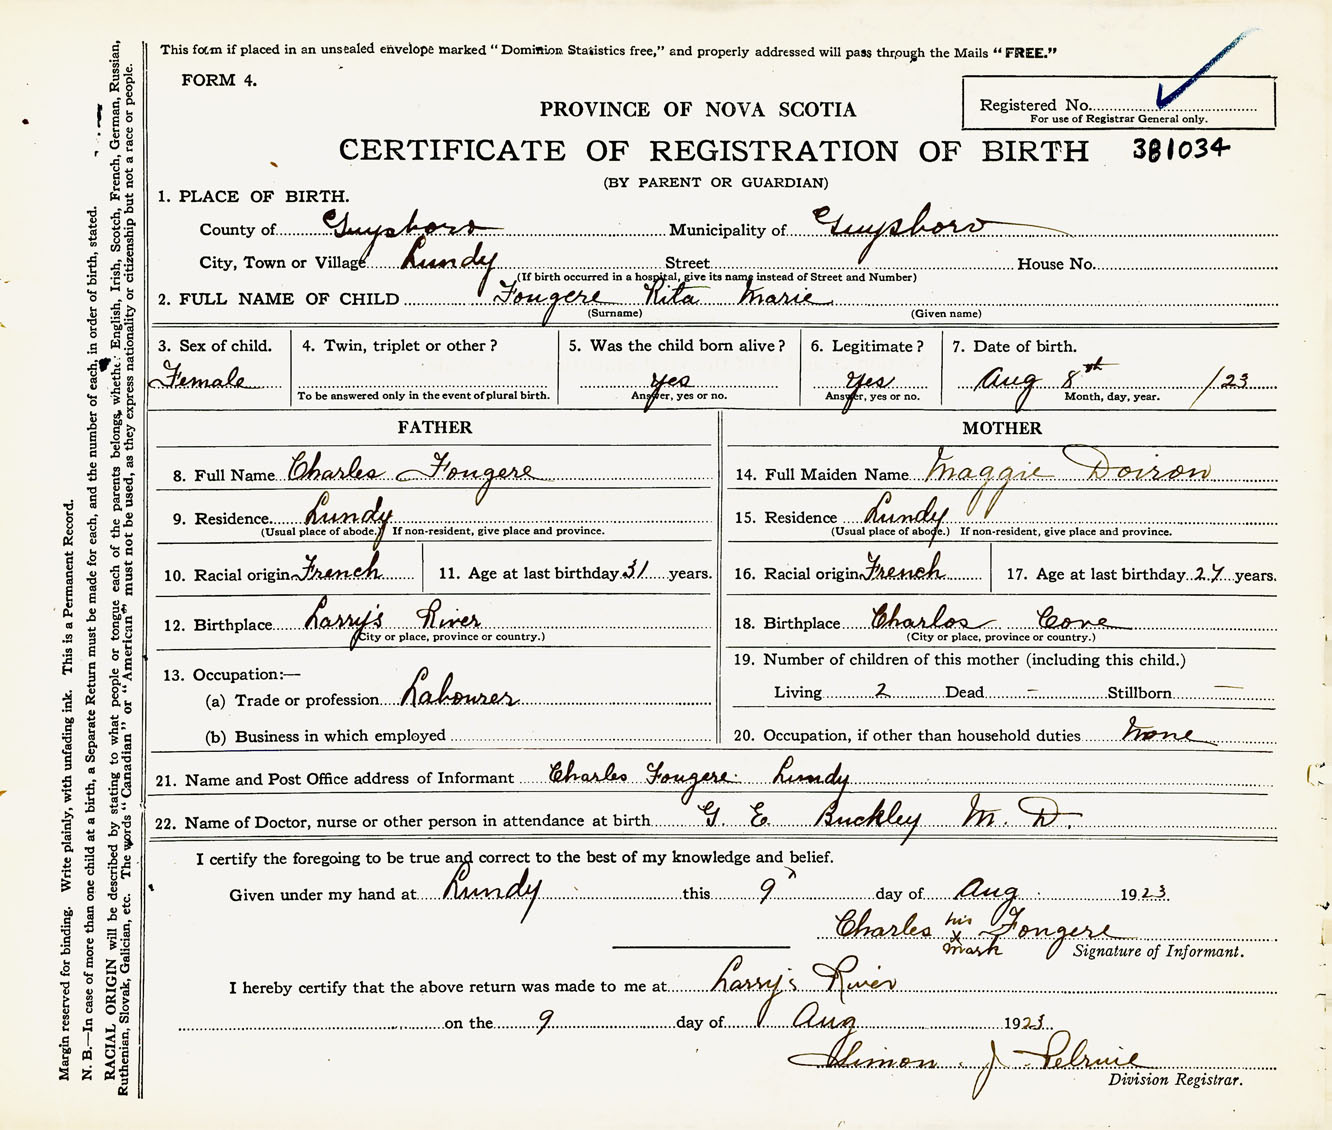 This form if placed in an unsealed envelope marked "Dominion Statistics free," and properly addressed will pass through the Mails "FREE."
FORM 4.
Registered No.
For use of Registrar General only.
PROVINCE OF NOVA SCOTIA
CERTIFICATE OF REGISTRATION OF BIRTH 381034
(BY PARENT OR GUARDIAN)
1. PLACE OF BIRTH.
County of Guysboro Municipality of Guysboro
City, Town or Village Lundy Street House No.
(If birth occurred in a hospital, give its name instead of Street and Number)
2. FULL NAME OF CHILD Fougere Rita Marie
(Surname) (Given name)
3. Sex of child. 4. Twin, triplet or other? 5. Was the child born alive? 6. Legitimate? 7. Date of birth.
Female Yes Yes Aug 8th /23
To be answered only in the event of plural birth. Answer, yes or no. Answer, yes or no. Month, day, year.
FATHER
8. Full Name Charles Fougere
9. Residence Lundy
(Usual place of abode.) If non-resident, give place and province.
10. Racial origin French 11. Age at last birthday 31 years.
12. Birthplace Larry's River
(City or place, province or country.)
13. Occupation:—
(a) Trade or profession Labourer
(b) Business in which employed
MOTHER
14. Full Maiden Name Maggie Doiron
15. Residence Lundy
(Usual place of abode.) If non-resident, give place and province.
16. Racial origin French 17. Age at last birthday 27 years.
18. Birthplace Charlos Cove
(City or place, province or country.)
19. Number of children of this mother (including this child.)
Living 2 Dead – Stillborn —
20. Occupation, if other than household duties None
21. Name and Post Office address of Informant Charles Fougere Lundy
22. Name of Doctor, nurse or other person in attendance at birth G. E. Buckley M. D.
I certify the foregoing to be true and correct to the best of my knowledge and belief.
Given under my hand at Lundy this 9 day of Aug 1923
Charles his x mark Fougere
Signature of Informant.
I hereby certify that the above return was made to me at Larry's River
on the 9 day of Aug 1923
Simon J Pelrine
Division Registrar.
Margin reserved for binding. Write plainly, with unfading ink. This is a Permanent Record.
N. B.—In case of more than one child at a birth, a Separate Return must be made for each, and the number of each, in order of birth, stated.
RACIAL ORIGIN will be described by stating to what people or tongue each of the parents belongs, whether English, Irish, Scotch, French, German, Russian,
Ruthenian, Slovak, Galician, etc. The words "Canadian" or "American" must not be used, as they express nationality or citizenship but not a race or people.